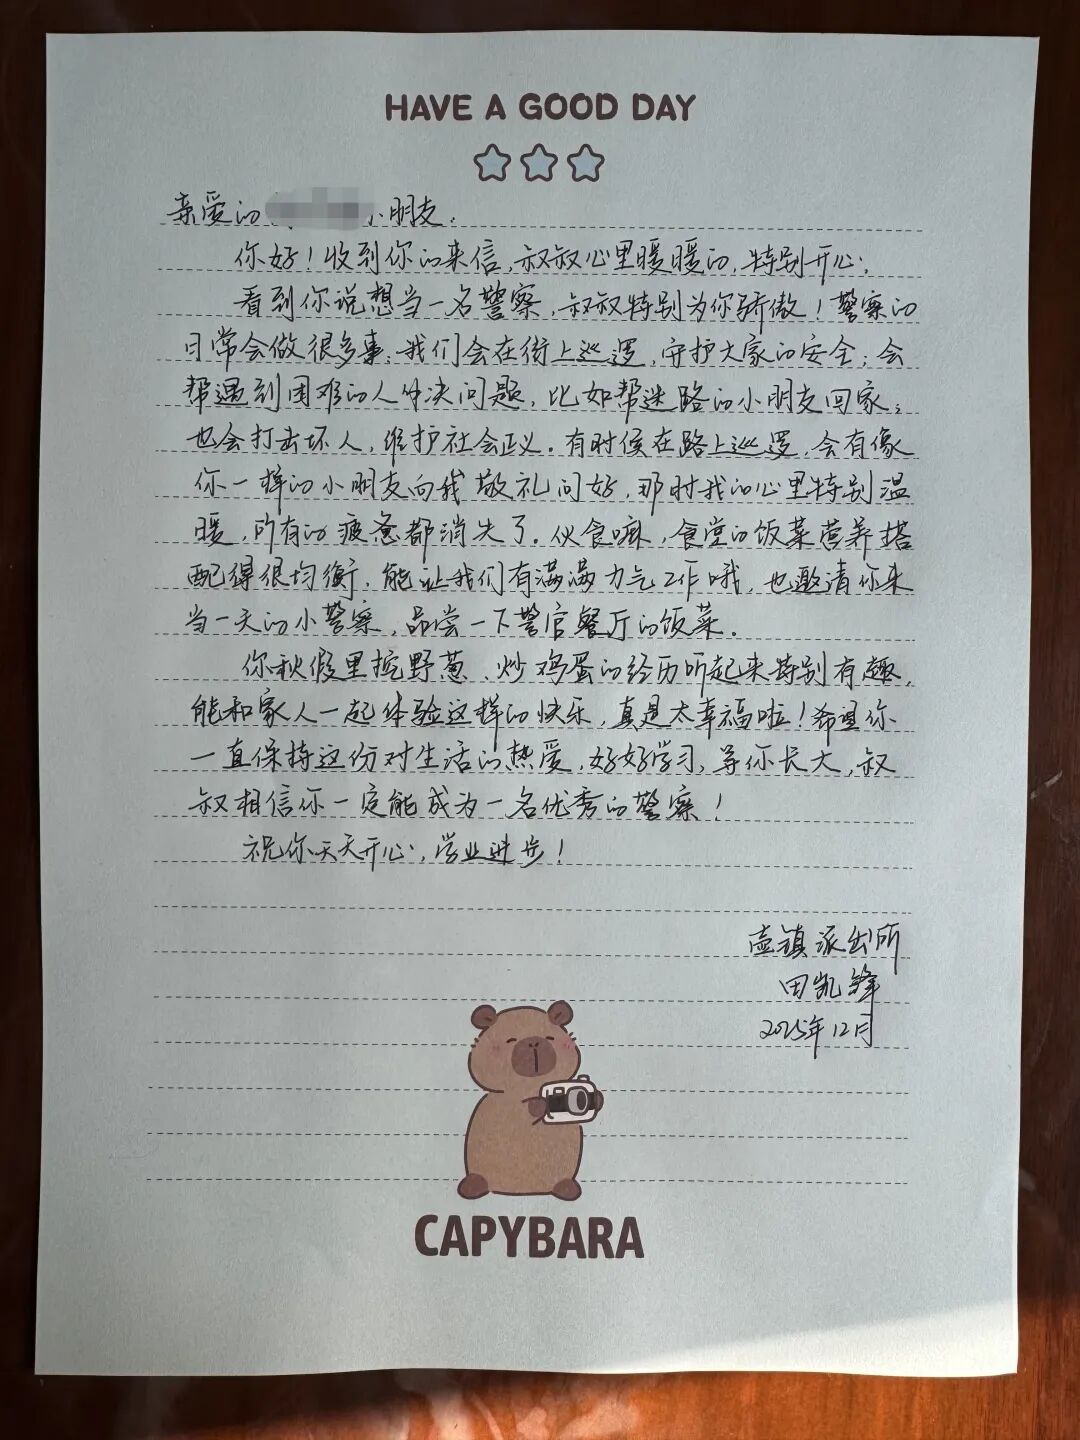 HAVE A GOOD DAY
亲爱的小朋友:
你好!收到你的来信,叔叔心里暖暖的,特别开心。
看到你说想当一名警察,叔叔特别为你骄傲!警察的
日常会做很多事:我们会在街上巡逻,守护大家的安全;会
帮遇到困难的人解决问题,比如帮迷路的小朋友回家;
也会打击坏人,维护社会正义。有时候在路上巡逻,会有像
你一样的小朋友向我敬礼问好,那时我的心里特别温
暖,所有的疲惫都消失了。伙食嘛,食堂的饭菜营养搭
配得很均衡,能让我们有满满力气工作哦,也邀请你来
当一天的小警察,品尝一下警官餐厅的饭菜。
你秋假里挖野葱、炒鸡蛋的经历听起来特别有趣,
能和家人一起体验这样的快乐,真是太幸福啦!希望你
一直保持这份对生活的热爱,好好学习,等你长大,叔
叔相信你一定能成为一名优秀的警察!
祝你天天开心,学业进步!
壶镇派出所
田凯锋
2025年12月
CAPYBARA